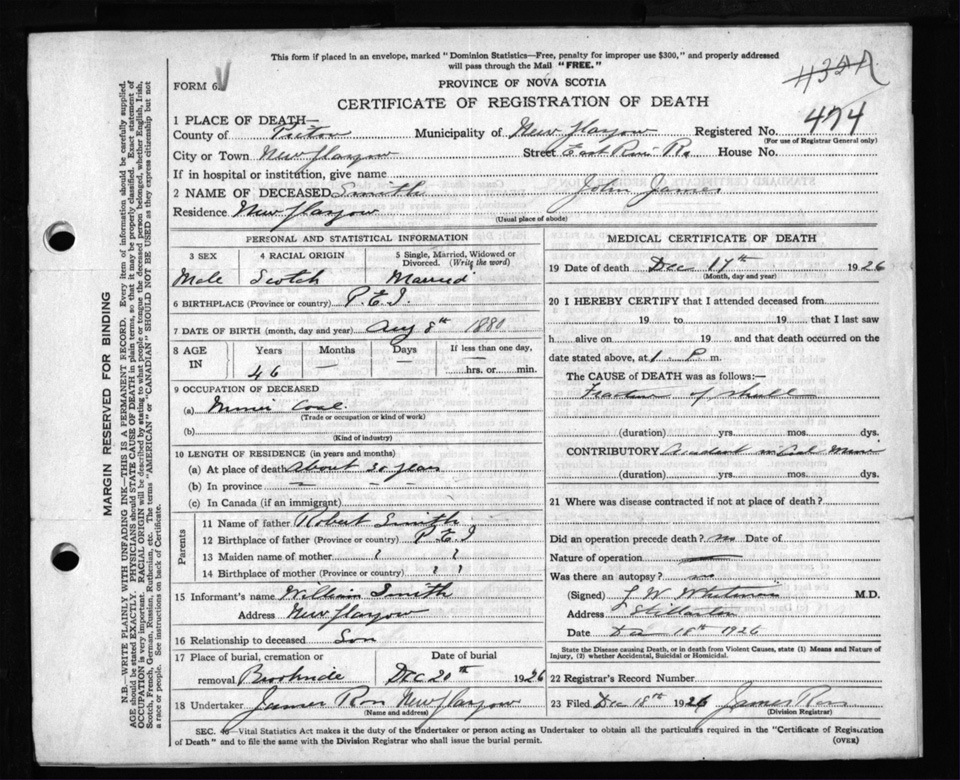 This form if placed in an envelope, marked "Dominion Statistics—Free, penalty for improper use $300," and properly addressed
will pass through the Mail "FREE."
FORM 6
PROVINCE OF NOVA SCOTIA
CERTIFICATE OF REGISTRATION OF DEATH
1 PLACE OF DEATH—
County of Pictou Municipality of New Glasgow Registered No. 474
(For use of Registrar General only)
City or Town New Glasgow Street East River Rd House No.
If in hospital or institution, give name
2 NAME OF DECEASED Smith John James
Residence New Glasgow
(Usual place of abode)
PERSONAL AND STATISTICAL INFORMATION
3 SEX 4 RACIAL ORIGIN 5 Single, Married, Widowed or Divorced. (Write the word)
Male Scotch Married
6 BIRTHPLACE (Province or country) P.E.I.
7 DATE OF BIRTH (month, day and year) Aug 8th 1880
8 AGE IN Years Months Days If less than one day,
46 — hrs. or min.
9 OCCUPATION OF DECEASED
(a) Miner Coal
(Trade or occupation or kind of work)
(b)
(Kind of industry)
10 LENGTH OF RESIDENCE (in years and months)
(a) At place of death About 30 years
(b) In province — —
(c) In Canada (if an immigrant)
Parents
11 Name of father Robert Smith
12 Birthplace of father (Province or country) P.E.I
13 Maiden name of mother ? ?
14 Birthplace of mother (Province or country) ? ?
15 Informant's name William Smith
Address New Glasgow
16 Relationship to deceased Son
17 Place of burial, cremation or removal Date of burial
Dec 20th 1926
18 Undertaker James Ross New Glasgow
(Name and address)
MEDICAL CERTIFICATE OF DEATH
19 Date of death Dec 17th 1926
(Month, day and year)
20 I HEREBY CERTIFY that I attended deceased from
19 to 19 that I last saw
h alive on 19 and that death occurred on the
date stated above, at 1. P m.
The CAUSE of DEATH was as follows:—
Fracture of skull
(duration) yrs. mos. dys.
CONTRIBUTORY Accident in Coal Mine
(duration) yrs. mos. dys.
21 Where was disease contracted if not at place of death?
Did an operation precede death? no Date of
Nature of operation —
Was there an autopsy? no
(Signed) M.D.
Address Stellarton
Date Dec 18th 1926
State the Disease causing Death, or in death from Violent Causes, state (1) Means and Nature of
Injury, (2) whether Accidental, Suicidal or Homicidal.
22 Registrar's Record Number
23 Filed Dec 18th 1926 James Ross
(Division Registrar)
SEC. 46—Vital Statistics Act makes it the duty of the Undertaker or person acting as Undertaker to obtain all the particulars required in the "Certificate of Registration
of Death" and to file the same with the Division Registrar who shall issue the burial permit. (OVER)
MARGIN RESERVED FOR BINDING
N.B.—WRITE PLAINLY WITH UNFADING INK—THIS IS A PERMANENT RECORD. Every item of information should be carefully supplied.
AGE should be stated EXACTLY. PHYSICIANS should STATE CAUSE OF DEATH in plain terms, so that it may be properly classified. Exact statement of
OCCUPATION is very important. RACIAL ORIGIN will be described by stating to what people or tongue the deceased person belonged, whether English, Irish,
Scotch, French, German, Russian, Ruthenian, etc. The terms "AMERICAN" or "CANADIAN" SHOULD NOT BE USED as they express citizenship but not
a race or people. See instructions on back of Certificate.